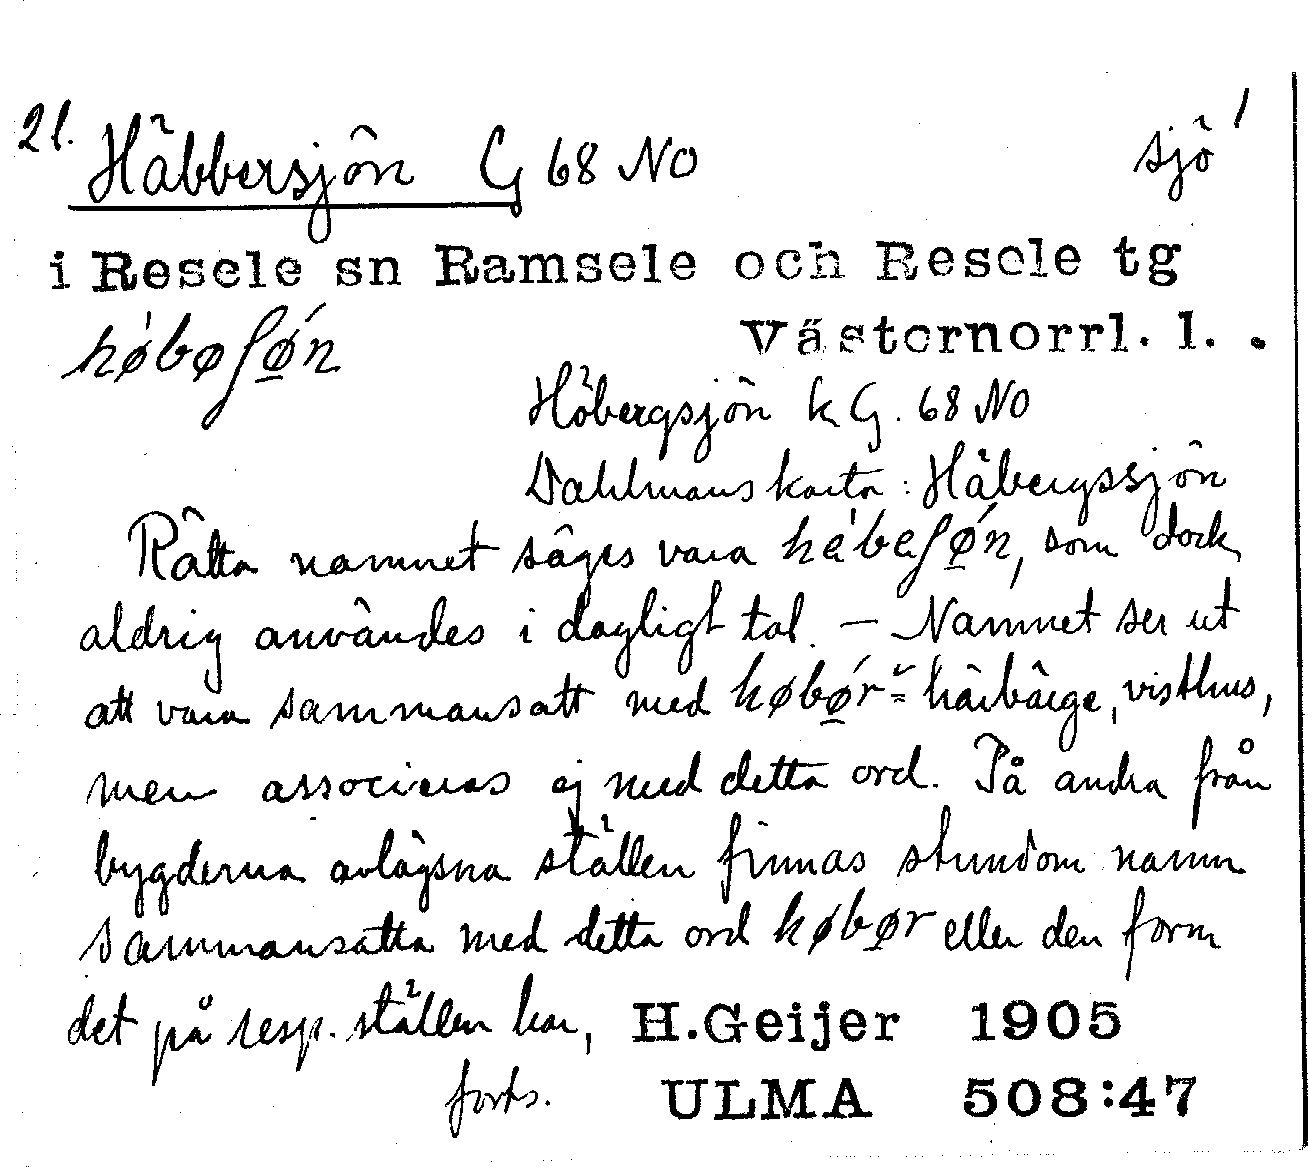 21. Häbbersjön G 68 NO sjö 1
i Resele sn Ramsele och Resele tg
hø̍bøʃǿ̲n Västernorrl. l.
Höbergsjön k G. 68 NO
Dahlmans karta: Häbergssjön
Rätta namnet säges vara hè̍beʃǿ̲n, som dock
aldrig användes i dagligt tal. — Namnet ser ut
att vara sammansatt med høbǿ̲r = härbärge, visthus,
men associeras ej med detta ord. På andra från
bygderna avlägsna ställen finnas stundom namn
sammansatta med detta ord høbø̲r eller den form
det på resp. ställen har, H.Geijer 1905
forts. ULMA 508:47